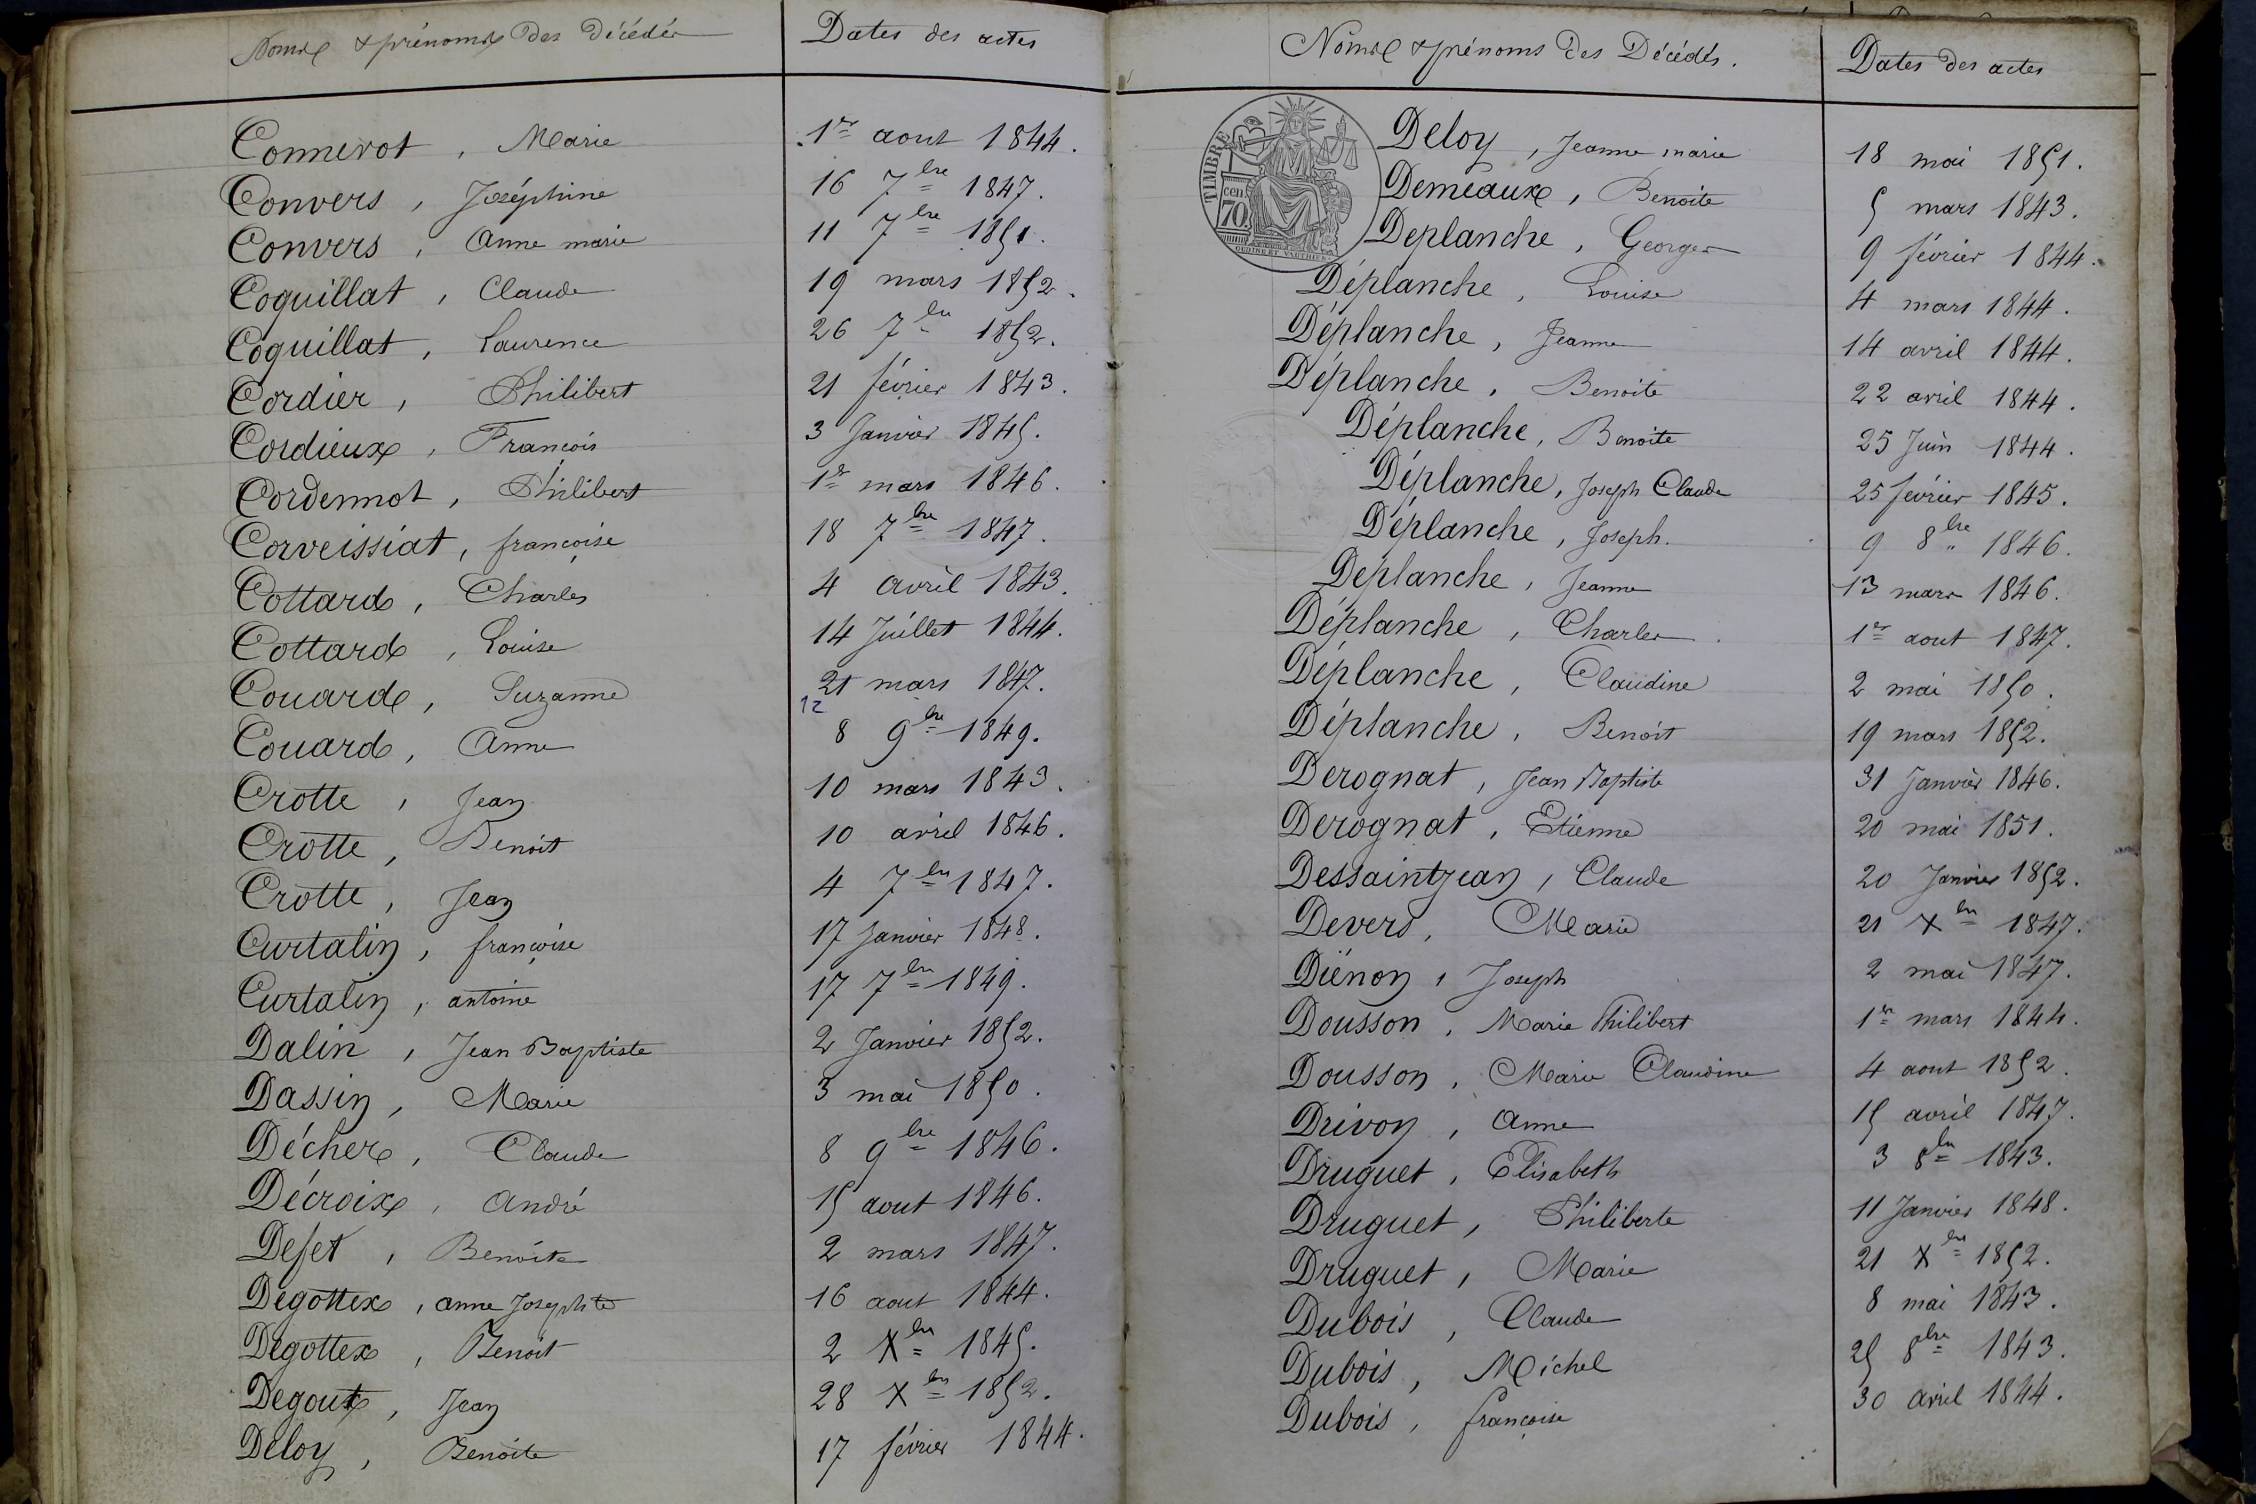 Noms & prénoms des Décédés Dates des actes
Connerot, Marie 1er aout 1844.
Convers, Joséphine 16 7bre 1847.
Convers, Anne marie 11 7bre 1851.
Coquillat, Claude 19 mars 1852.
Coquillat, Laurence 26 7bre 1852.
Cordier, Philibert 21 février 1843.
Cordieux, François 3 Janvier 1845.
Cordennot, Philibert 1er mars 1846.
Corveissiat, françoise 18 7bre 1847.
Cottard, Charles 4 avril 1843.
Cottard, Louise 14 Juillet 1844.
Couard, Suzanne 21 mars 1847.
12
Couard, Anne 8 9bre 1849.
Crotte, Jean 10 mars 1843.
Crotte, Benoit 10 avril 1846.
Crotte, Jean 4 7bre 1847.
Curtalin, françoise 17 Janvier 1848.
Curtalin, antoine 17 7bre 1849.
Dalin, Jean Baptiste 2 Janvier 1852.
Dassin, Marie 3 mai 1850.
Décher, Claude 8 9bre 1846.
Décroix, André 15 aout 1846.
Defet, Benoite 2 mars 1847.
Degottex, anne Josephte 16 aout 1844.
Degottex, Benoit 2 Xbre 1845.
Degout, Jean 28 Xbre 1852.
Deloy, Benoite 17 février 1844.
Noms & prénoms des Décédés. Dates des actes
TIMBRE
cen
70.
OUDINE ET VAUTHIER
Deloy, Jeanne marie 18 mai 1851.
Demeaux, Benoite 5 mars 1843.
Deplanche, Georges 9 février 1844.
Déplanche, Louise 4 mars 1844.
Déplanche, Jeanne 14 avril 1844.
Déplanche, Benoite 22 avril 1844.
Déplanche, Benoite 25 Juin 1844.
Déplanche, Joseph Claude 25 février 1845.
Déplanche, Joseph. 9 8bre 1846.
Déplanche, Jeanne 13 mars 1846.
Déplanche, Charles 1er aout 1847.
Déplanche, Claudine 2 mai 1850.
Déplanche, Benoit 19 mars 1852.
Derognat, Jean Baptiste 31 Janvier 1846.
Derognat, Etienne 20 mai 1851.
Dessaintjean, Claude 20 Janvier 1852.
Devers, Marie 21 Xbre 1847.
Diénon, Joseph 2 mai 1847.
Dousson, Marie Philibert 1er mars 1844.
Dousson, Marie Claudine 4 aout 1852.
Drivon, Anne 15 avril 1847.
Druguet, Elisabeth 3 8bre 1843.
Druguet, Philiberte 11 Janvier 1848.
Druguet, Marie 21 Xbre 1852.
Dubois, Claude 8 mai 1843.
Dubois, Michel 25 8bre 1843.
Dubois, françoise 30 avril 1844.